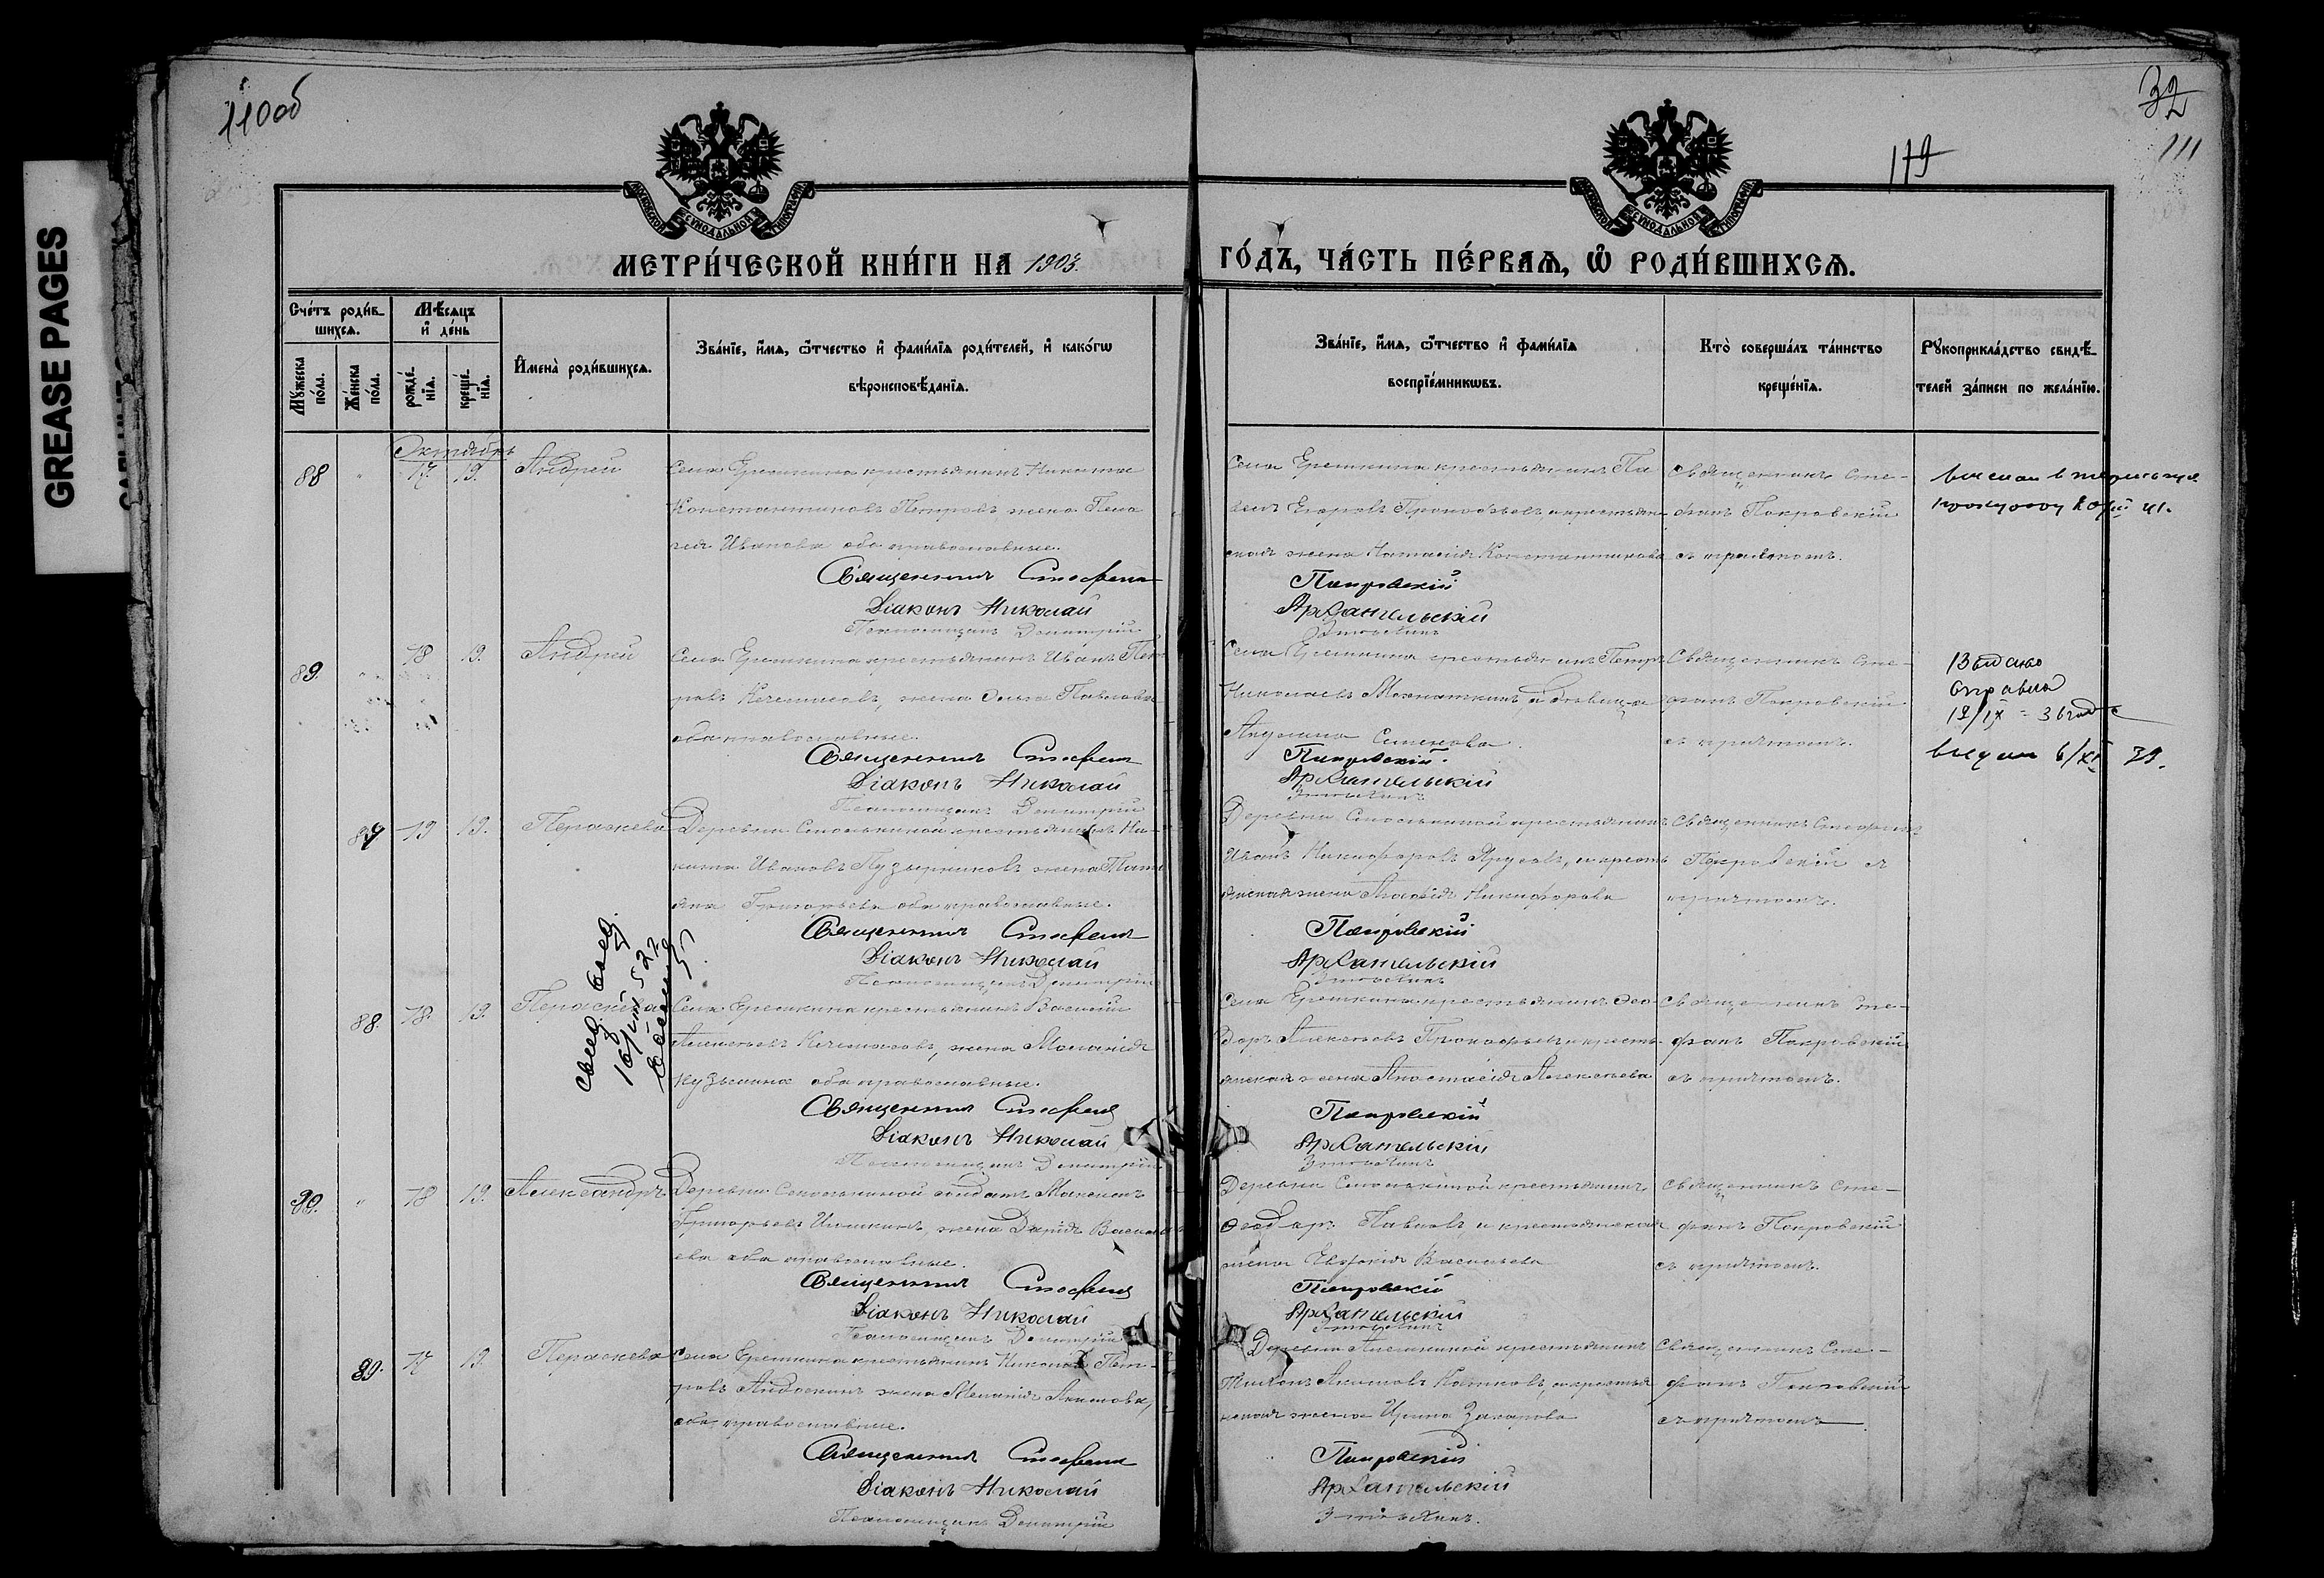 110об
32
111
179
GREASE PAGES
МОСКОВСКОЙ СУНОДАЛЬНОЙ ТИПОГРАФІИ
МОСКОВСКОЙ СУНОДАЛЬНОЙ ТИПОГРАФІИ
МЕТРИ́ЧЕСКОЙ КНИ́ГИ НА 1903.
ГО́ДЪ, ЧА́СТЬ ПЕ́РВАѦ, Ѡ РОДИ́ВШИХСѦ.
Сче́тъ роди́в-
шихсѧ.
Мꙋжеска по́ла.
Же́нска по́ла.
Мѣ́сѧцъ
и҆ де́нь
рожде́-
нїѧ.
креще́-
нїѧ.
И҆мена̀ роди́вшихсѧ.
Зва́нїе, и҆́мѧ, ѻ҆́тчество и҆ фами́лїѧ роди́телей, и҆ како́гѡ
вѣроисповѣ́данїѧ.
Зва́нїе, и҆́мѧ, ѻ҆́тчество и҆ фами́лїѧ
воспрїе́мникѡвъ.
Кто̀ соверша́лъ та́инство
креще́нїѧ.
Рꙋкоприкла́дство свидѣ́-
телей за́писи по жела́нїю.
Октябрь
88 " 17. 19. Андрей
Села Ерешкина крестьянинъ Никита
Константиновъ Петровъ жена Пела
гея Иванова оба православные.
Священникъ Стефанъ
Діаконъ Николай
Псаломщикъ Димитрій
Села Ерешкина крестьянинъ Па
велъ Егоровъ Прокофьевъ, и крестьян-
ская жена Наталія Константинова
Покровскій
Архангельскій
Священникъ Сте-
фанъ Покровскій
съ причтомъ.
89. 18 19. Андрей
Села Ерешкина крестьянинъ Иванъ Пет
ровъ Кечемасовъ, жена Ольга Павлова
оба православные.
Священникъ Стефанъ
Діаконъ Николай
Псаломщикъ Димитрій
Села Ерешкина крестьянинъ Петръ
Николаевъ Мохнаткинъ, и дѣвица
Акулина Семенова.
Покровскій.
Архангельскій
Священникъ Сте-
фанъ Покровскій
съ причтомъ.
Выдана
справка
19/IX = 36 года
выдан 6/XI 39.
87 19 19. Параскева
Деревни Смолькиной крестьянинъ Ни-
кита Ивановъ Пузырниковъ жена Тать
яна Григорьева оба православные.
Священникъ Стефанъ
Діаконъ Николай
Псаломщикъ Димитрій
Деревни Смолькиной крестьянинъ
Иванъ Никифоровъ Ярусовъ, и кресть
янская жена Агафія Никифорова
Покровскій
Архангельскій
Священникъ Стефанъ
Покровскій съ
причтомъ.
88. 18. 19. Параскева
Села Ерешкина крестьянинъ Василій
Алексѣевъ Кечемасовъ, жена Маланія
Кузьмина оба православные.
Священникъ Стефанъ
Діаконъ Николай
Псаломщикъ Димитрій
Села Ерешкина крестьянинъ Ѳео-
доръ Алексѣевъ Прокофьевъ и кресть
янская жена Анастасія Алексѣева
Покровскій
Архангельскій
Священникъ Сте-
фанъ Покровскій
съ причтомъ.
90. " 18 19. Александръ
Деревни Смолькиной солдатъ Максимъ
Григорьевъ Илюшкинъ, жена Дарія Василь
ева оба православные.
Священникъ Стефанъ
Діаконъ Николай
Псаломщикъ Димитрій
Деревни Смолькиной крестьянинъ
Ѳеодоръ Павловъ, и крестьянская
жена Евфимія Васильева
Покровскій
Архангельскій
Священникъ Сте-
фанъ Покровскій
съ причтомъ.
89. 17 19. Параскева
Села Ерешкина крестьянинъ Николай Пет-
ровъ Авдоскинъ жена Меланія Акимова,
оба православные.
Священникъ Стефанъ
Діаконъ Николай
Псаломщикъ Димитрій
Деревни Алешкиной крестьянинъ
Тихонъ Акимовъ Катковъ, и крестья
нская жена Ирина Захарова
Покровскій
Архангельскій
Священникъ Сте-
фанъ Покровскій
съ причтомъ